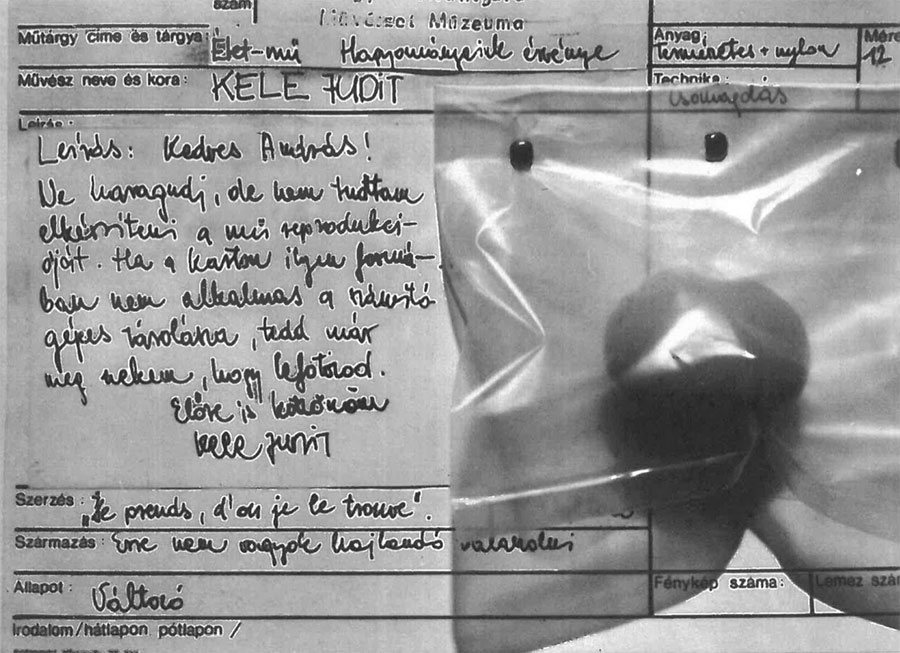 szám
Művészet Múzeuma
Műtárgy címe és tárgya: Élet-mű Hagyományaink érvénye
Anyag: Természetes + nylon
Mére
12
Művész neve és kora: KELE JUDIT
Technika:
csomagolás
Leírás:
Leírás: Kedves András!
Ne haragudj, de nem tudtam
elkészíteni a mű reprodukci-
óját. Ha a karton ilyen formá-
ban nem alkalmas a számító-
gépes tárolásra, tedd már
meg nekem, hogy lefotózod.
Előre is köszönöm
Kele Judit
Szerzés: „Je prends, d'ou je le trouve".
Származás: Erre nem vagyok hajlandó válaszolni
Állapot: Változó
Fénykép száma:
Lemez szám
Irodalom/hátlapon pótlapon /